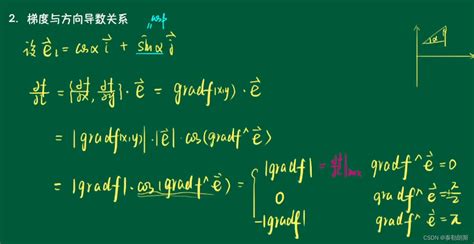 2. 梯度与方向导数关系
cosβ
设 e⃗₁ = cosα i⃗ + sinα j⃗
α
∂f/∂l = {∂f/∂x, ∂f/∂y}·e⃗ = gradf(x,y)·e⃗
= |gradf(x,y)|·|e⃗|·cos(gradf^e⃗)
= |gradf|·cos(gradf^e⃗) = { |gradf| = ∂f/∂l|max gradf^e⃗ = 0
0 gradf^e⃗ = π/2
-|gradf| gradf^e⃗ = π